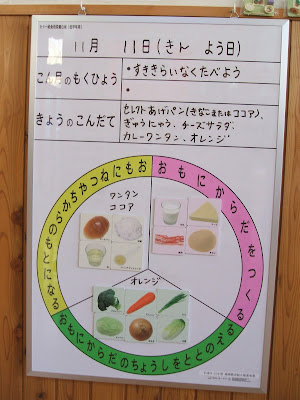 11月 11日(きん よう日)
こん月のもくひょう
・すききらいなくたべよう
・
きょうのこんだて
セレクトあげパン(きなこまたはココア)、
ぎゅうにゅう、チーズサラダ、
カレーワンタン、オレンジ
おもにねつやちからのもとになる
おもにからだをつくる
ワンタン
ココア
オレンジ
おもにからだのちょうしをととのえる